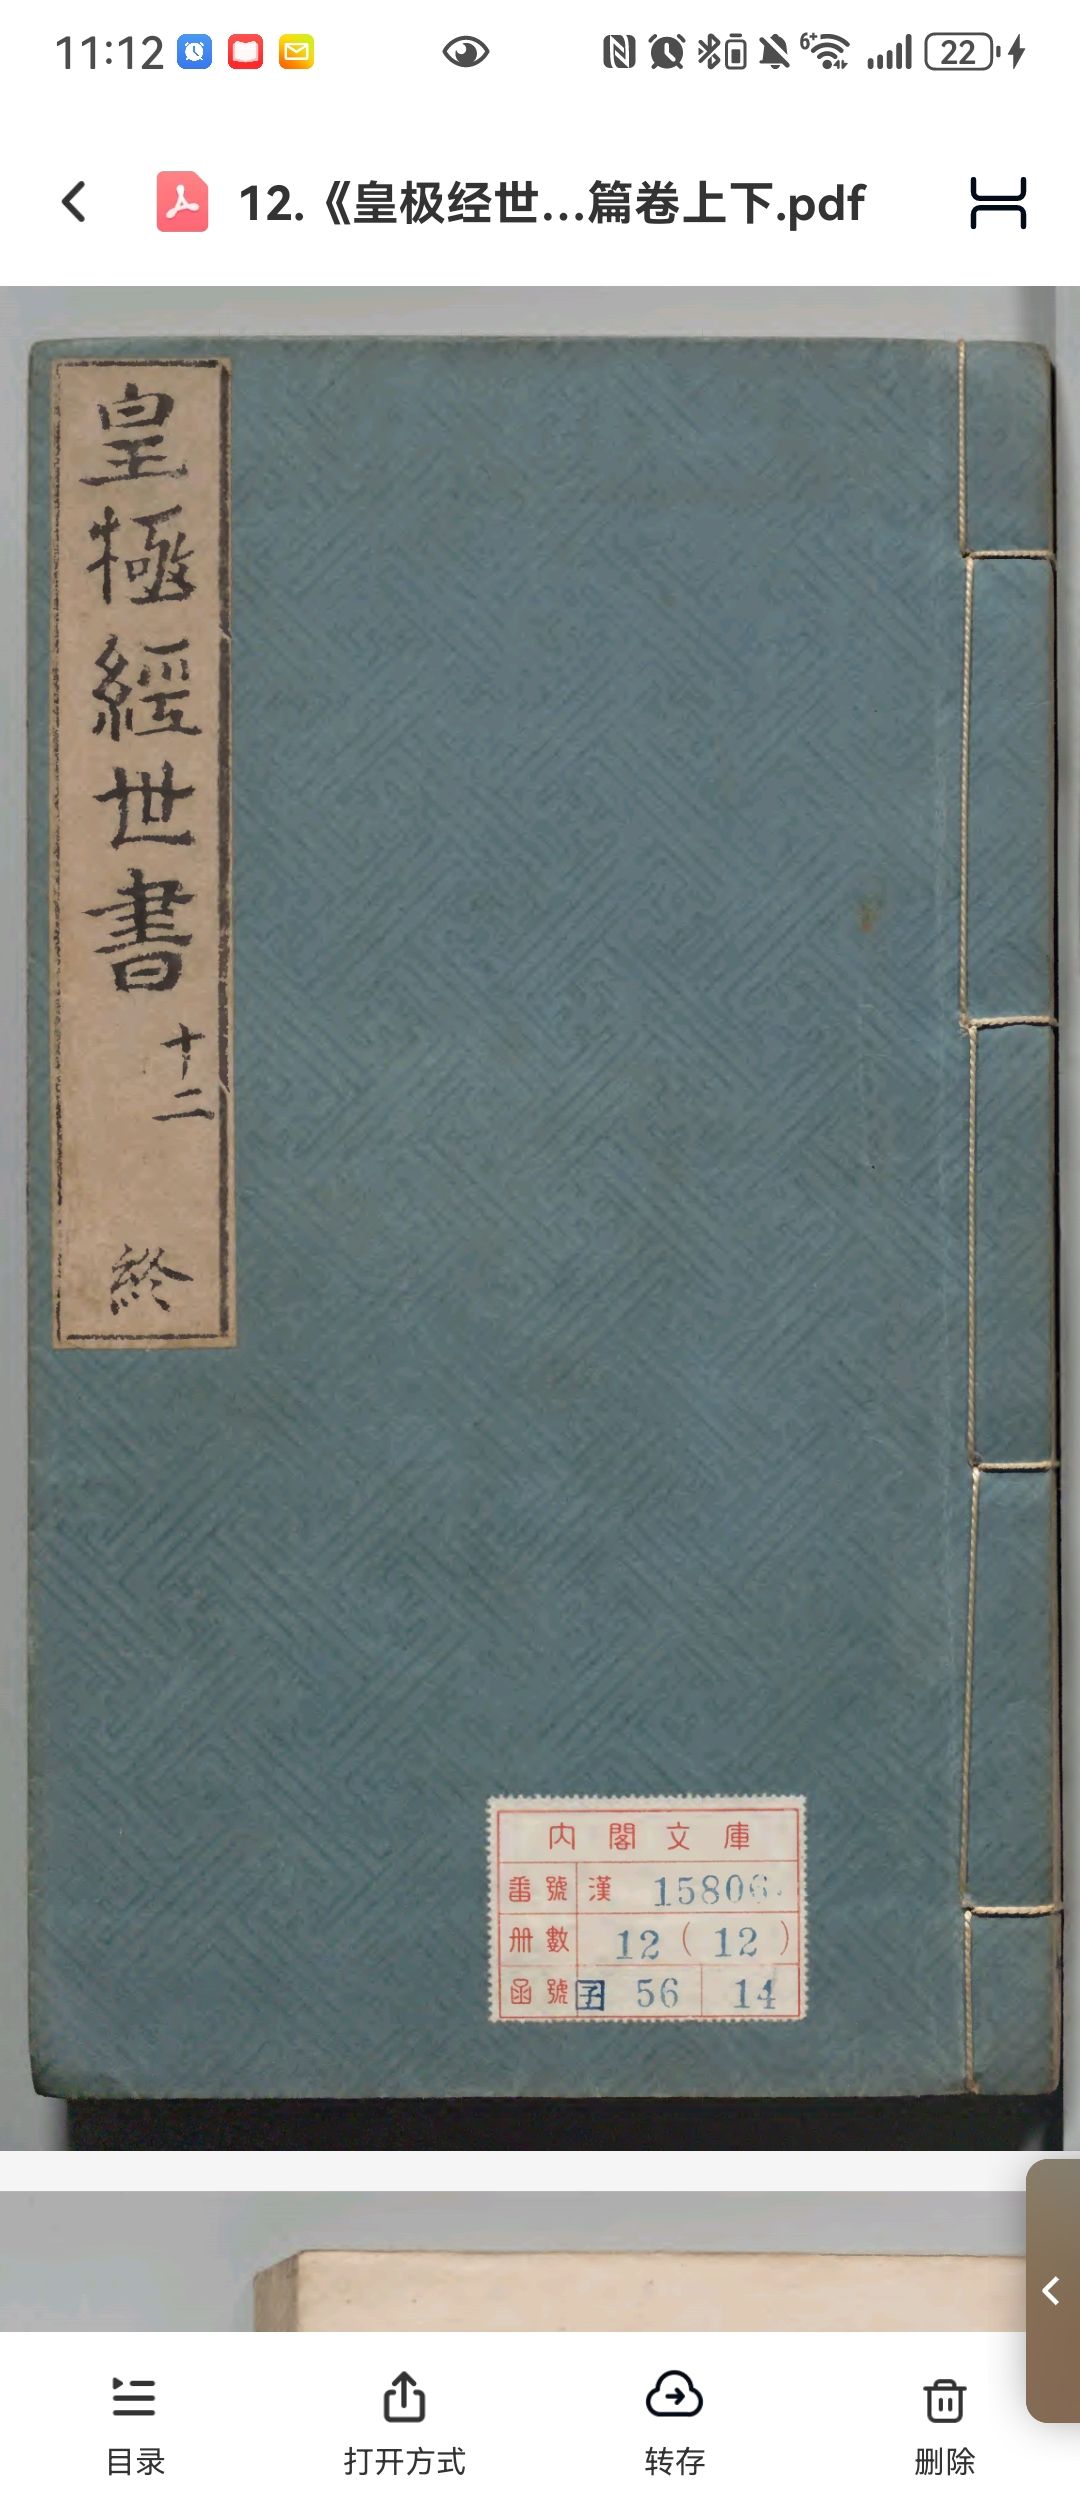 11:12
6+
22
12.《皇极经世...篇卷上下.pdf
皇極經世書
十二
終
内閣文庫
番號 漢 15806.
冊數 12 ( 12 )
函號 子 56 14
目录 打开方式 转存 删除